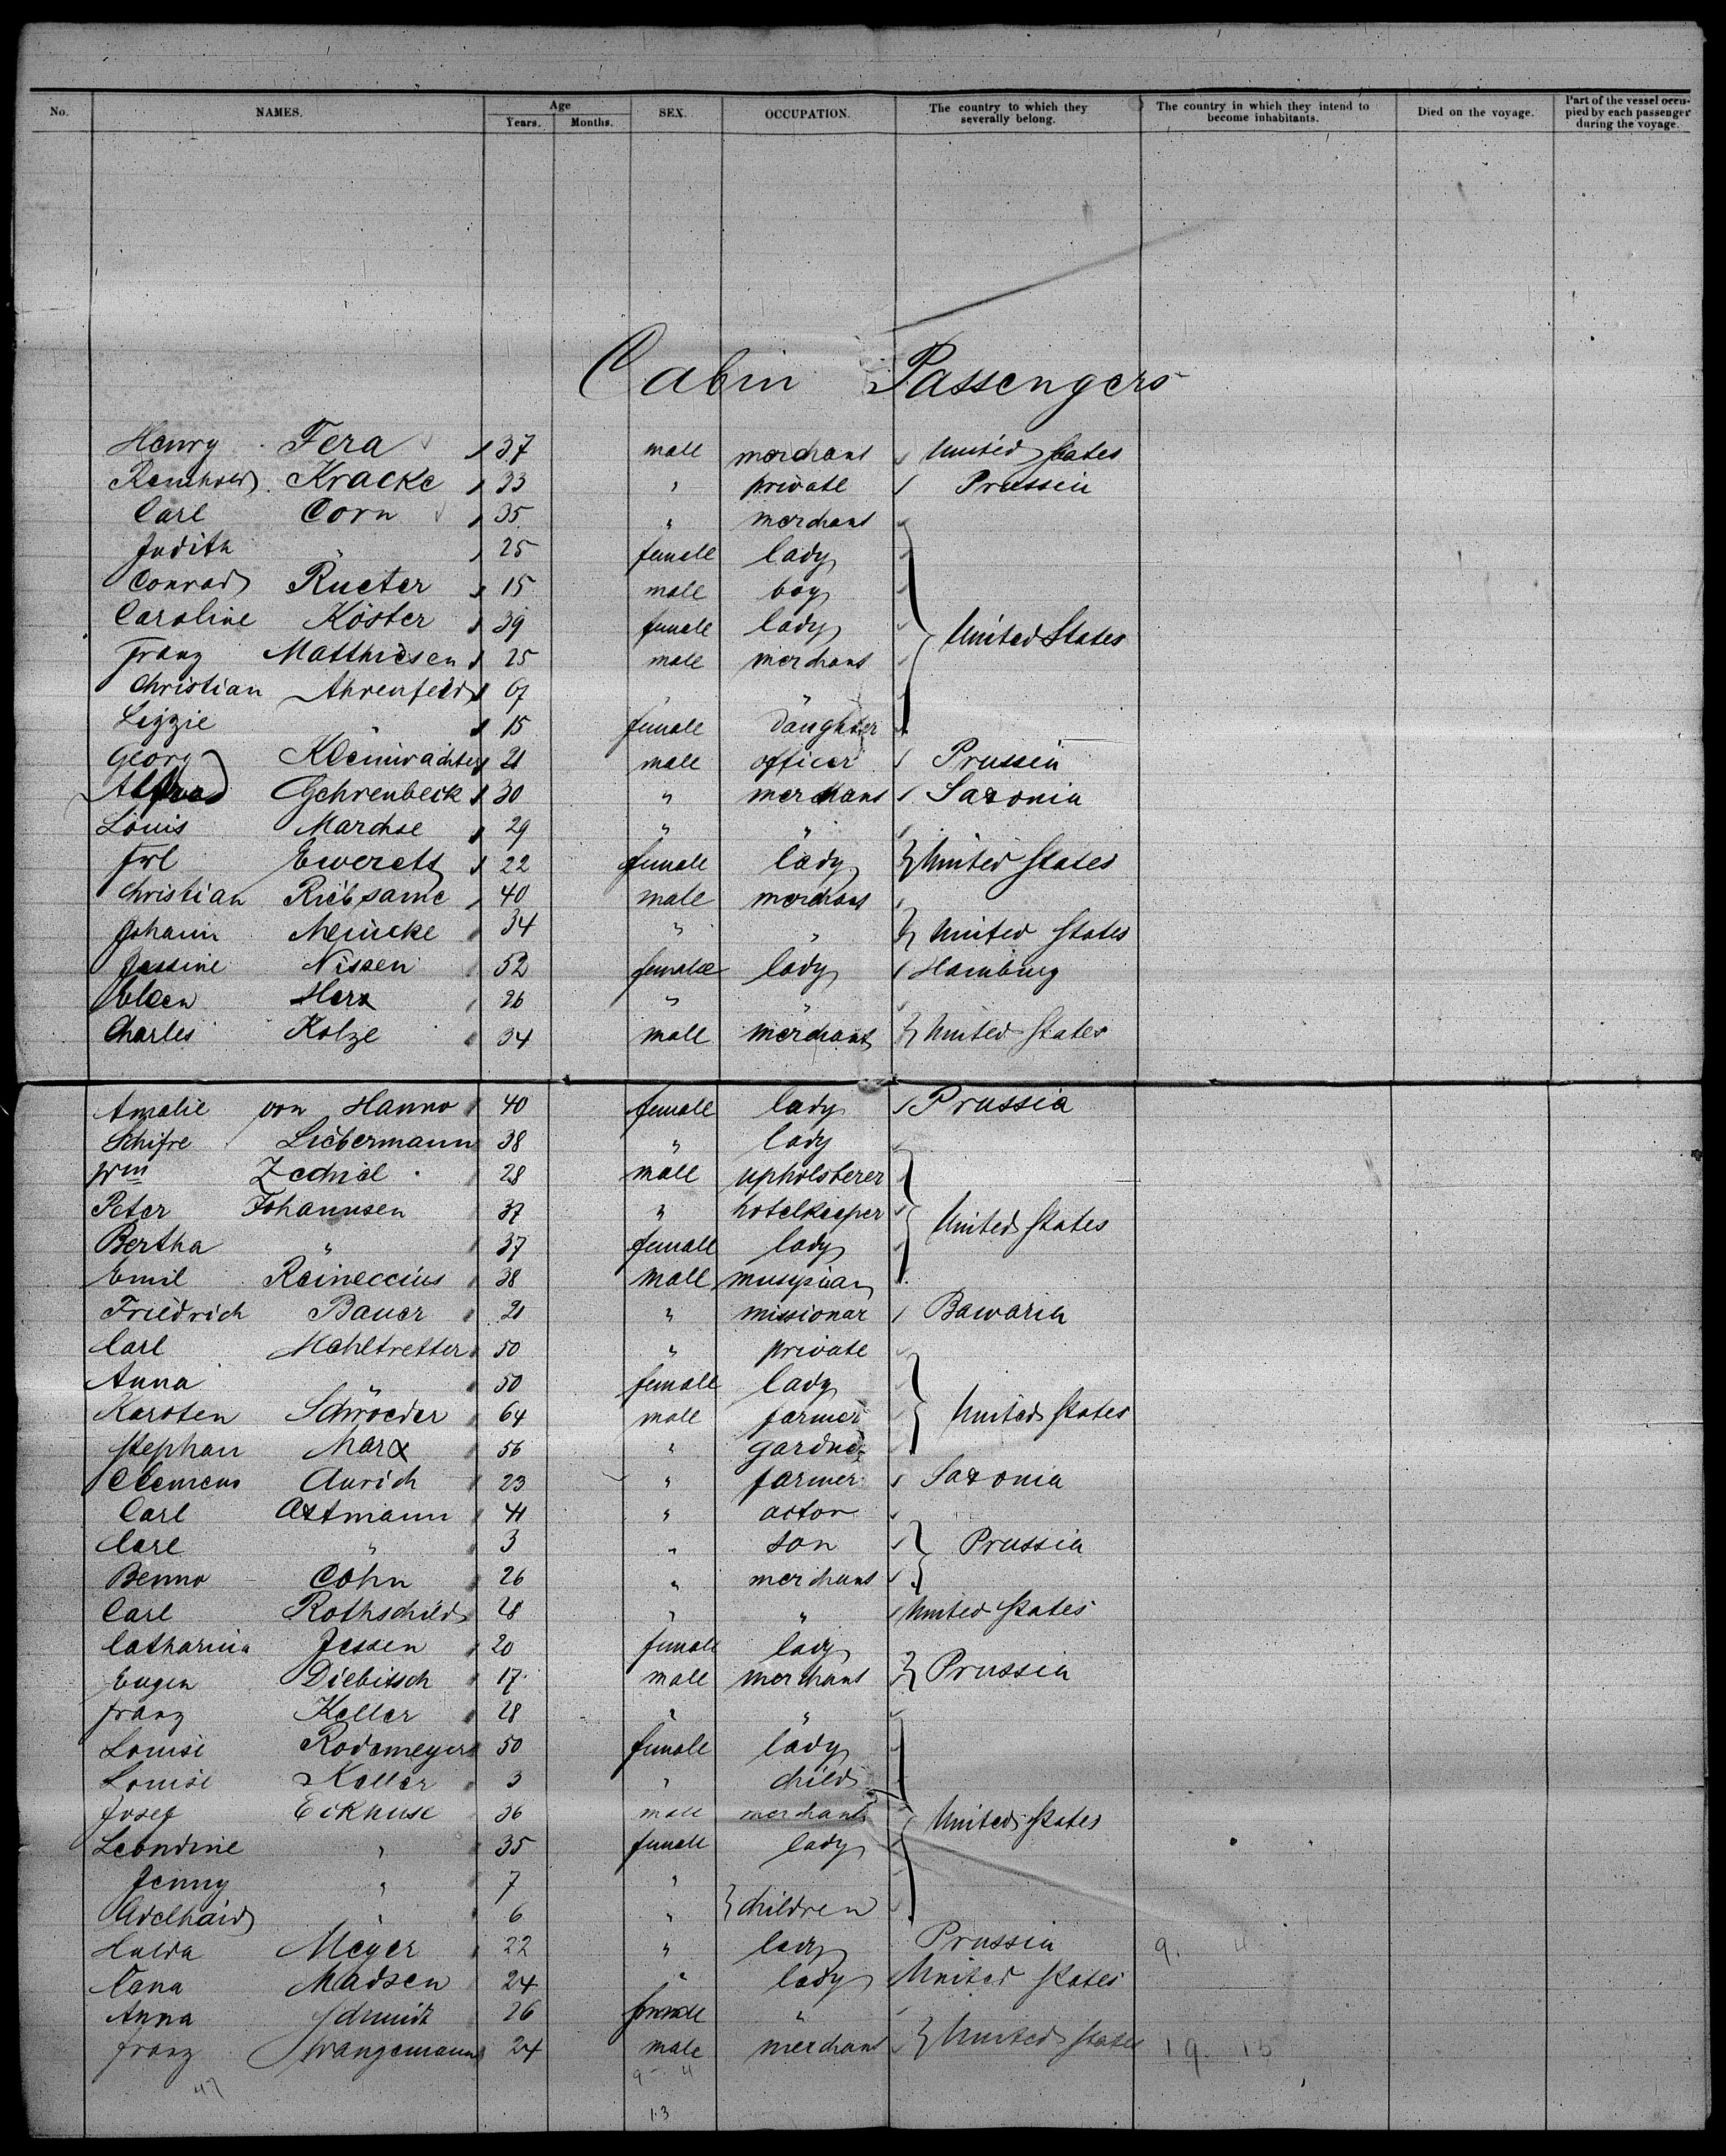 No. NAMES. Age Years. Months. SEX. OCCUPATION. The country to which they severally belong. The country in which they intend to become inhabitants. Died on the voyage. Part of the vessel occupied by each passenger during the voyage.
Cabin Passengers
Henry Fera 37 male merchant United States
Reinhold Kracke 33 " private Prussia
Carl Corn 35 " merchant
Judith " 25 female lady
Conrad Rueter 15 male boy
Caroline Köster 39 female lady United States
Franz Matthiesen 25 male merchant
Christian Ahrenfeld 67 " "
Lizzie " 15 female daughter
Georg Kleinwächter 21 male officer Prussia
Alfred Gehrenbeck 30 " merchant Saxonia
Louis Marchse 29 " "
Frl Ewerets 22 female lady United States
Christian Riebsame 40 male merchant
Johann Meincke 34 " " United States
Jessine Nissen 52 female lady Hamburg
Ellen Herx 26 " "
Charles Kolze 34 male merchant United States
Amalie von Hanno 40 female lady Prussia
Schifre Liebermann 38 " lady
Wm Zednial 28 male upholsterer
Peter Johannsen 37 " hotelkeeper United States
Bertha " 37 female lady
Emil Reineccius 38 male musycian
Friedrich Bauer 21 " missionar Bawaria
Carl Mahltretter 50 " private
Anna " 50 female lady
Karsten Schroeder 64 male farmer United States
Stephan Marx 56 " gardner
Clemens Aurich 23 " farmer Saxonia
Carl Attmann 41 " actor
Carl " 3 " son Prussia
Benno Cohn 26 " merchant
Carl Rothschild 28 " " United States
Catharina Jessen 20 female lady
Eugen Diebitsch 17 male merchant Prussia
Franz Keller 28 " "
Louise Rodemeyer 50 female lady
Louise Keller 3 " child
Josef Eckhuse 36 male merchant United States
Leondine " 35 female lady
Jenny " 7 "
Adelhaid " 6 " children
Hulda Meyer 22 " lady Prussia 9. 4
Cana Madsen 24 " lady United States
Anna Schmidt 26 female "
Franz Wangemann 24 male merchant United States 19. 15
47 9 4
13